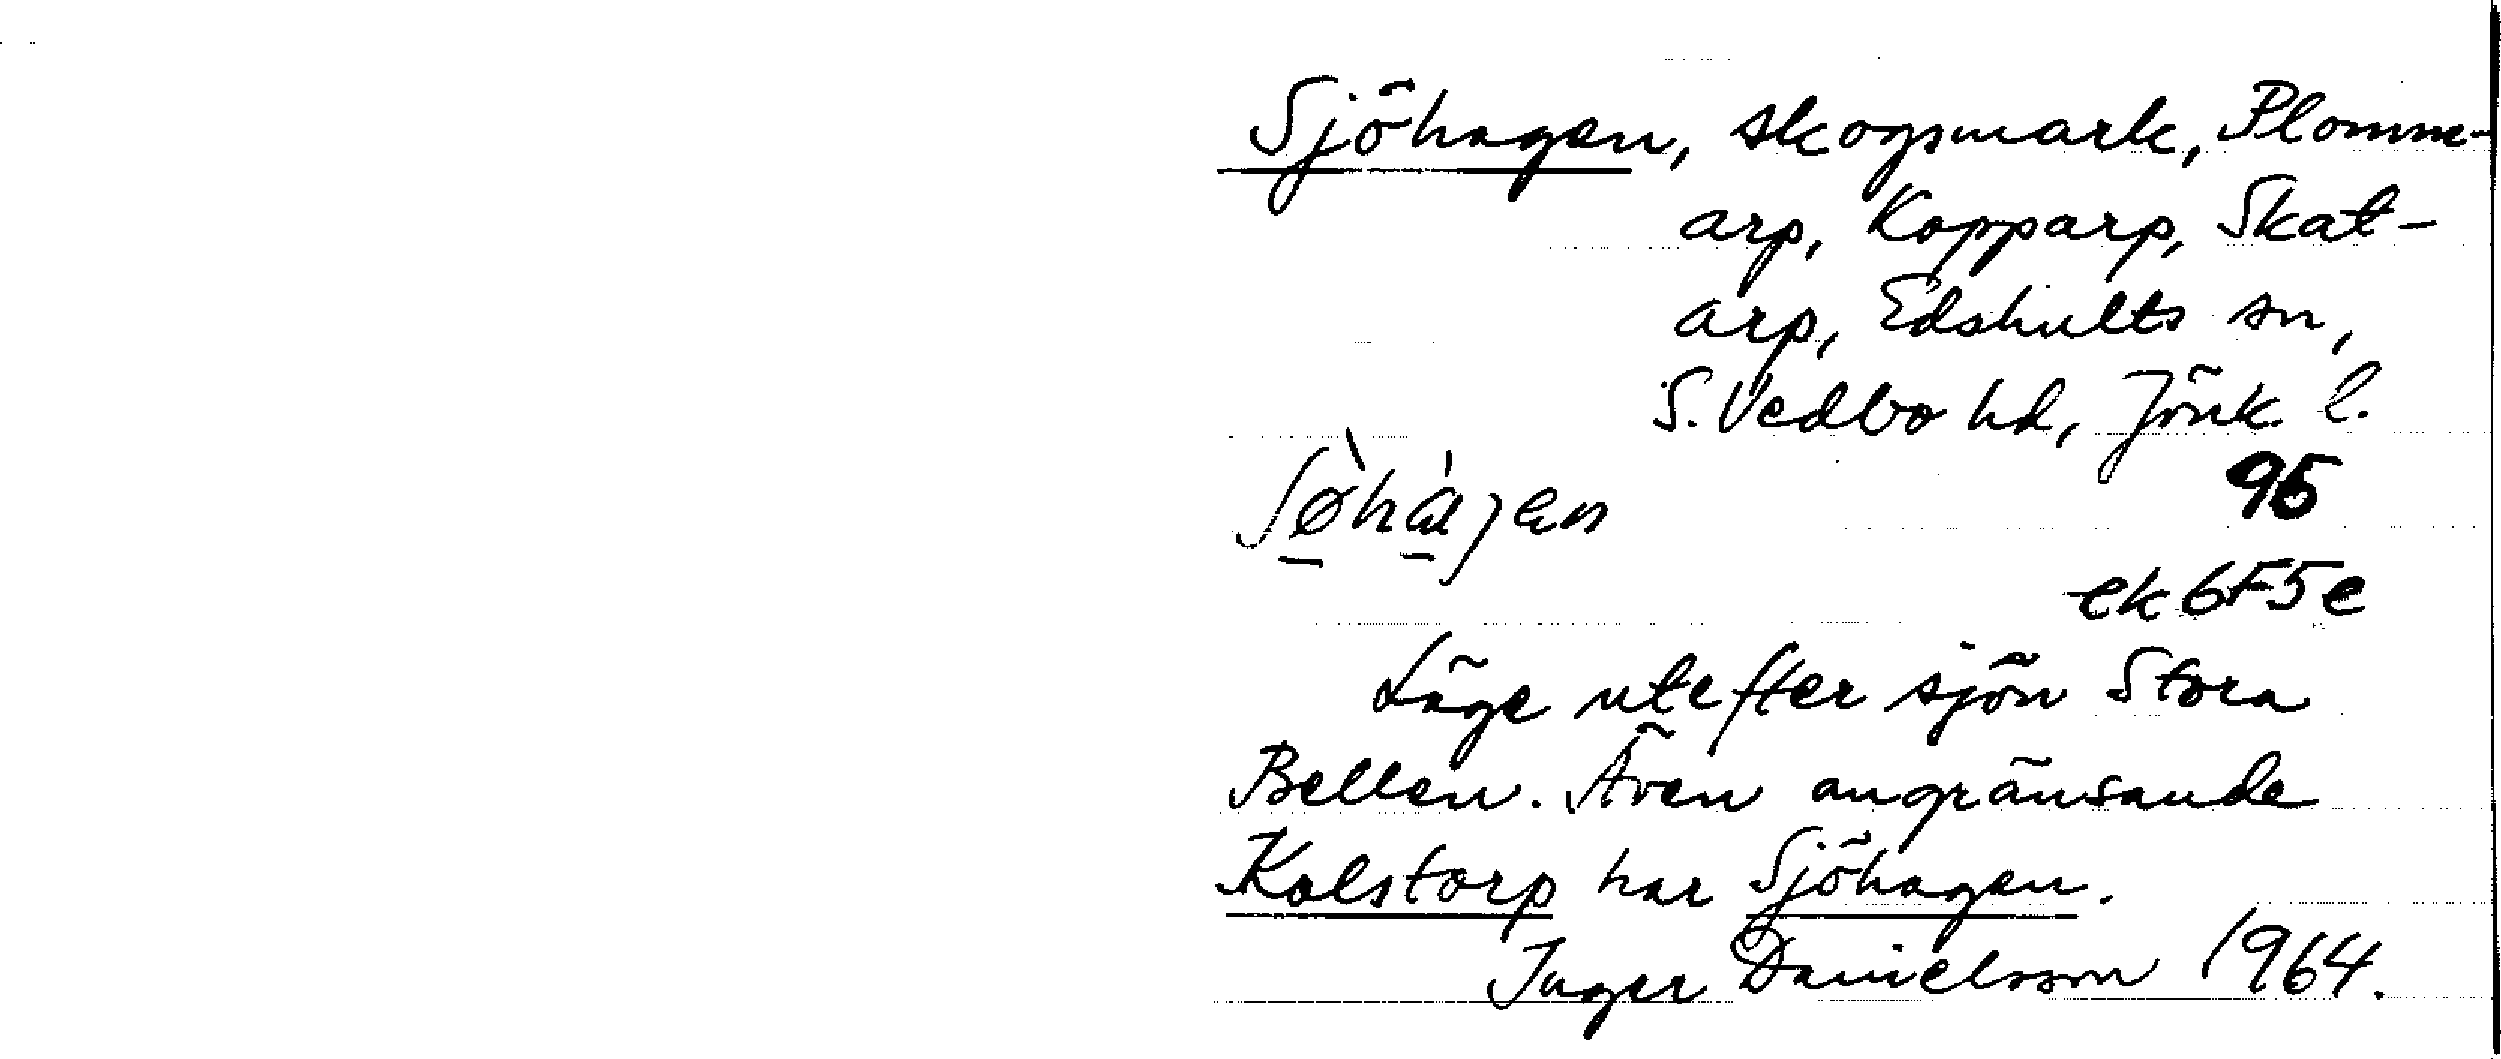 Sjöhagen, skogsmark, Plomme-
arp, Kopparp, Skat-
arp, Edshults sn,
S. Vedbo hd, Jönk. l.
95
ek 6F5e
Läge utefter sjön Stora
Bellen. Även angränsande
Kolstorp har Sjöhagen.
Inger Danielsson 1964.